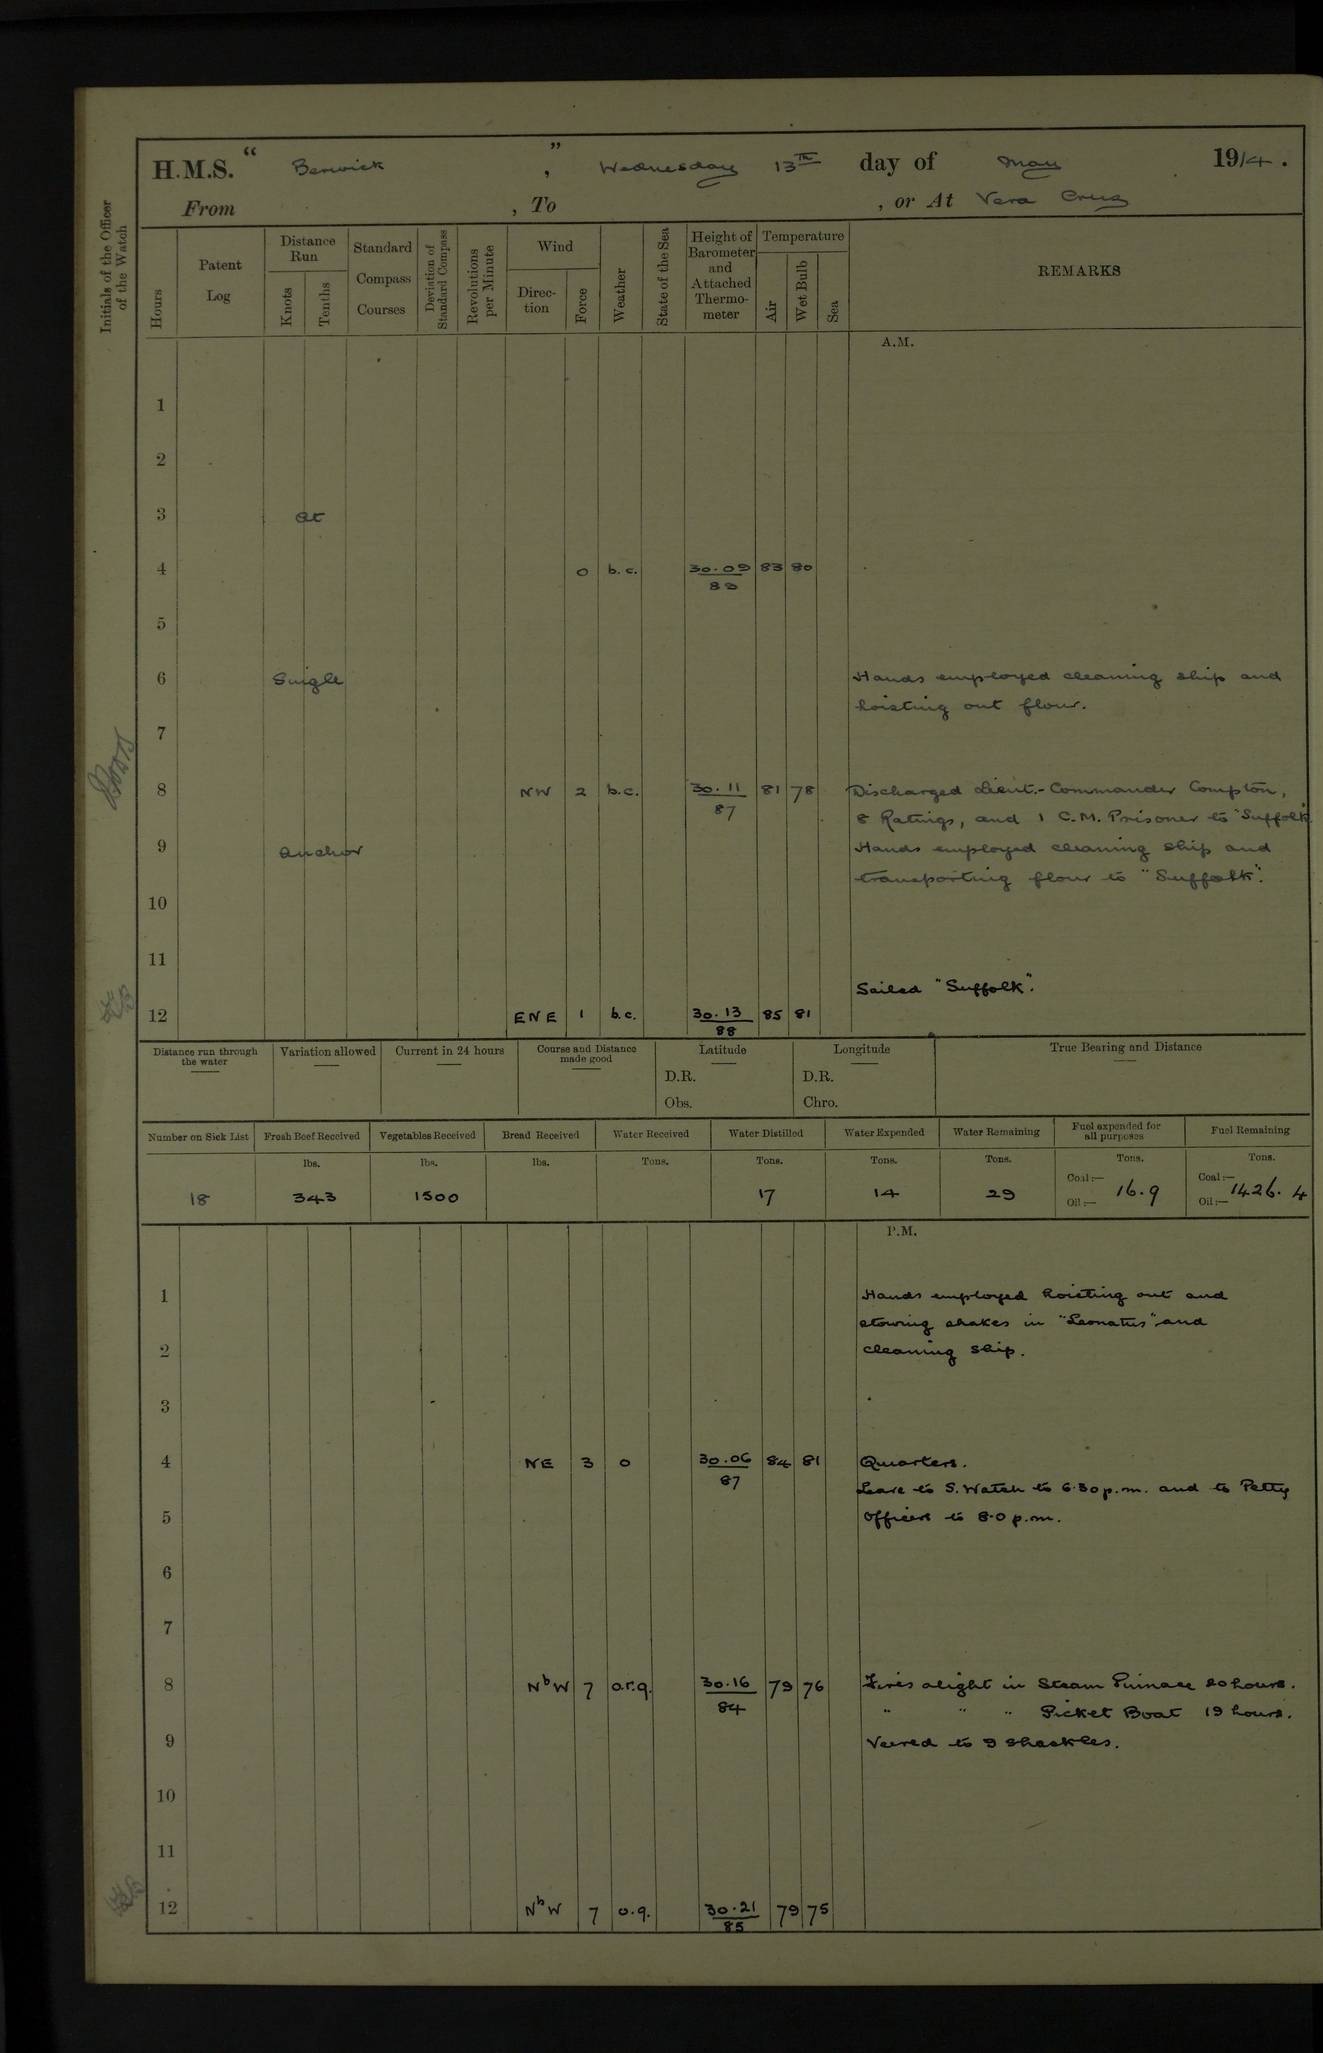 H.M.S. “ Berwick ” , Wednesday 13th day of May 1914.
From , To , or At Vera Cruz
Initials of the Officer of the Watch
Hours
Patent Log
Distance Run
Knots
Tenths
Standard Compass Courses
Deviation of Standard Compass
Revolutions per Minute
Wind
Direc-tion
Force
Weather
State of the Sea
Height of Barometer and Attached Thermo-meter
Temperature
Air
Wet Bulb
Sea
REMARKS
A.M.
1
2
3 At
4 0 b.c. 30.09 83 80
83
5
6 Single Hands employed cleaning ship and
hoisting out flour.
7
8 NW 2 b.c. 30.11 81 78 Discharged Lieut.-Commander Compton,
87 8 Ratings, and 1 C.M. Prisoner to "Suffolk"
9 Anchor Hands employed cleaning ship and
transporting flour to "Suffolk".
10
11
Sailed "Suffolk".
12 ENE 1 b.c. 30.13 85 81
88
Distance run through the water
Variation allowed
Current in 24 hours
Course and Distance made good
Latitude
D.R.
Obs.
Longitude
D.R.
Chro.
True Bearing and Distance
Number on Sick List Fresh Beef Received Vegetables Received Bread Received Water Received Water Distilled Water Expended Water Remaining Fuel expended for all purposes Fuel Remaining
lbs. lbs. lbs. Tons. Tons. Tons. Tons. Tons. Tons.
18 343 1500 17 14 29 Coal:— 16.9 Coal:— 1426.4
Oil:— Oil:—
P.M.
1 Hands employed hoisting out and
stowing shakes in "Leonatus" and
2 cleaning ship.
3
4 NE 3 o 30.06 84 81 Quarters.
87 Leave to S. Watch to 6.30 p.m. and to Petty
5 Officers to 8.0 p.m.
6
7
8 NbW 7 o.r.q. 30.16 79 76 Fires alight in Steam Pinnace 20 hours.
84 " " " Picket Boat 19 hours.
9 Veered to 9 shackles.
10
11
12 NbW 7 o.q. 30.21 79 75
85